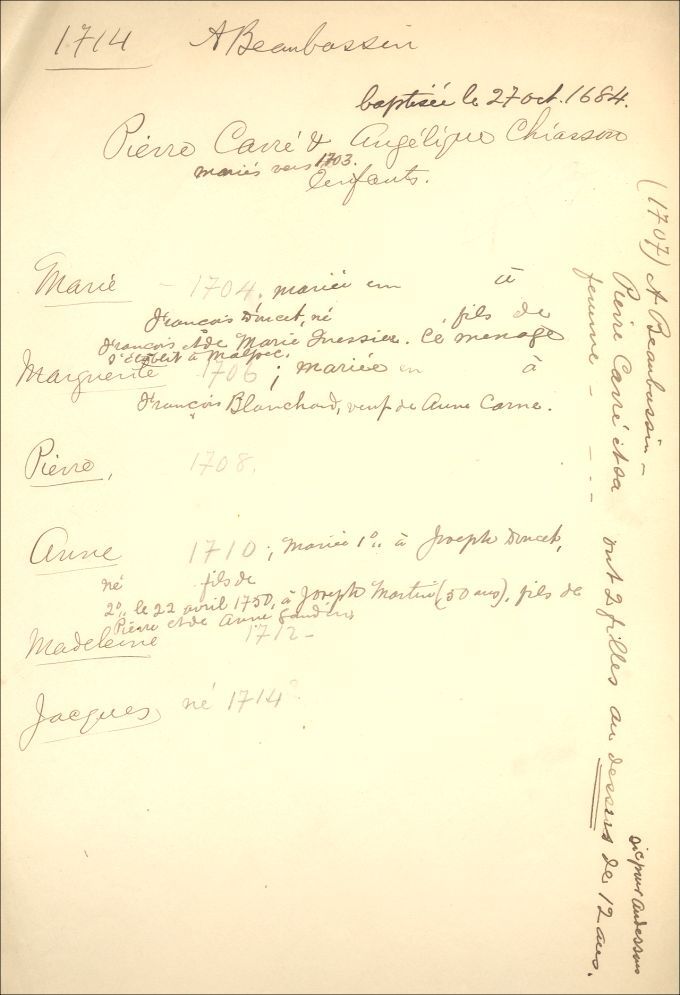 1714 A Beaubassin
baptisée le 27 oct. 1684.
Pierre Carré & Angélique Chiasson
mariés vers 1703.
enfants.
Marie - 1704, mariée en à
François Doucet, né , fils de
François et de Marie Suessier. Ce ménage
s'établit à Malpec.
Marguerite 1706 ; mariée en à
François Blanchard, veuf de Anne Corne.
Pierre, 1708.
Anne 1710 ; Mariée 1º.. à Joseph Doucet,
né fils de
2º.. le 22 avril 1750, à Joseph Martin (50 ans), fils de
Pierre et de Anne
Madeleine 1712-
Jacques, né 1714?
(1707) A Beaubassin -
Pierre Carré et sa
femme - - - ont 2 filles au dessus de 12 ans.
sic pour au dessous